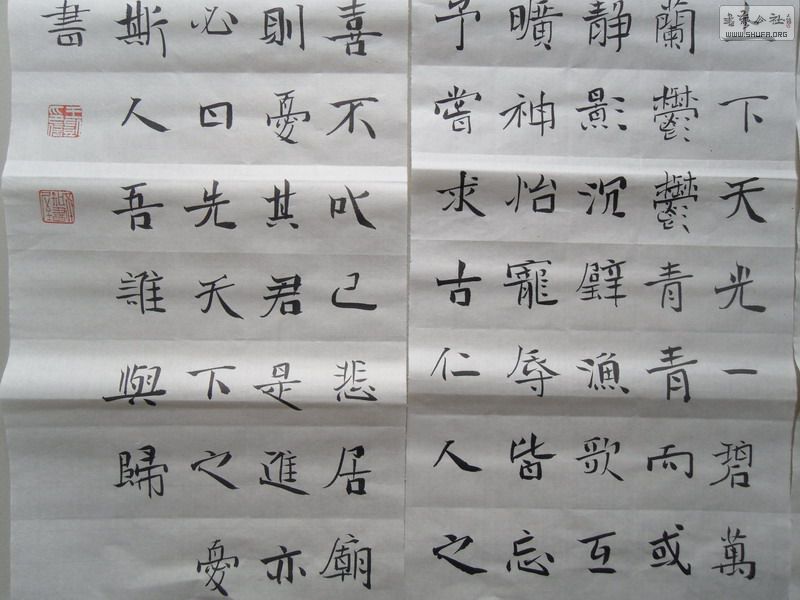 下天光一碧萬
蘭鬱鬱青青而或
靜影沉璧漁歌互
曠神怡寵辱皆忘
予嘗求古仁人之
喜不以己悲居廟
則憂其君是進亦
必曰先天下之憂
斯人吾誰與歸
書
书法公社
WWW.SHUFA.ORG